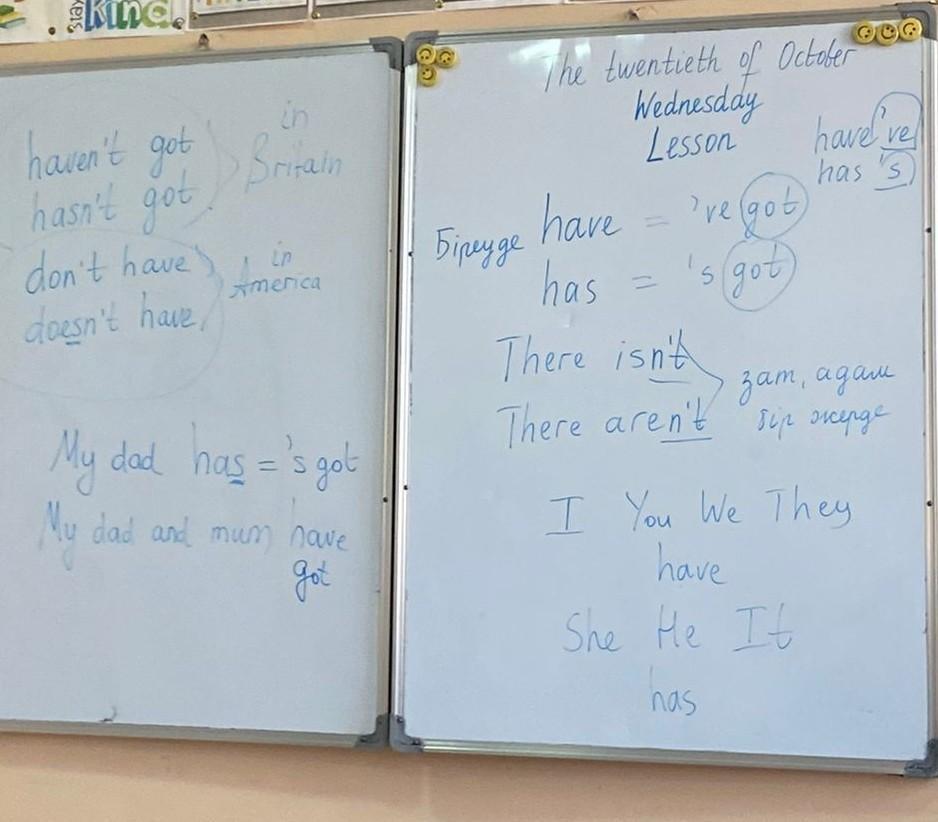 stay
kind
haven't got
hasn't got
in
Britain
don't have
doesn't have
in
America
My dad has = 's got
My dad and mum have
got
The twentieth of October
Wednesday
Lesson
have 've
has 's
Біреуде have = 've got
has = 's got
There isn't
There aren't
зат, адам
бір жерде
I You We They
have
She He It
has